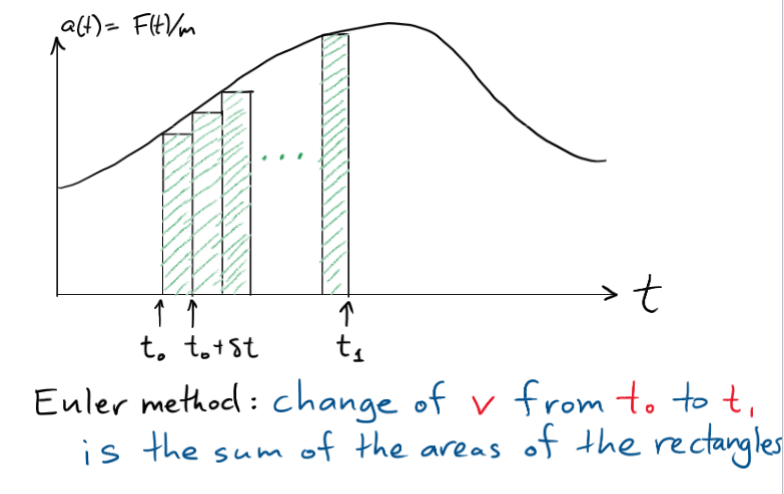 a(t) = F(t)/m
...
t
t₀ t₀+δt t₁
Euler method: change of v from t₀ to t₁
is the sum of the areas of the rectangles